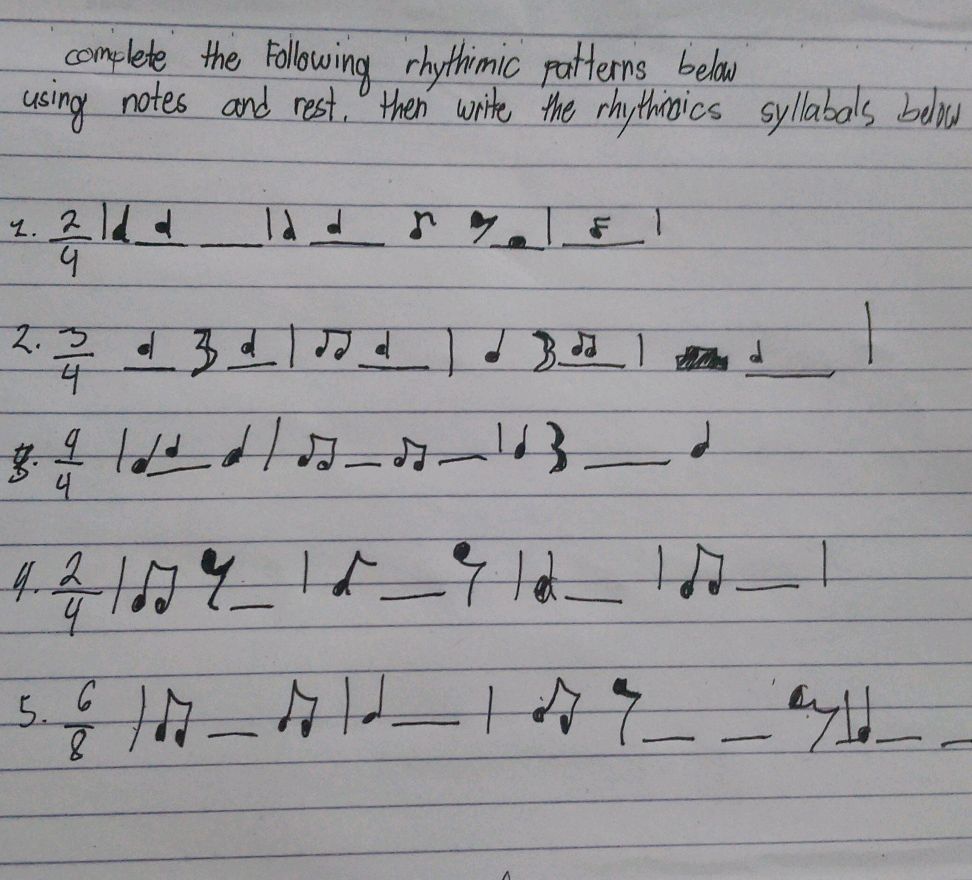 complete the Following rhythimic patterns below
using notes and rest. then write the rhythimics syllabals below
1. 2/4
2. 3/4
3. 4/4
4. 2/4
5. 6/8